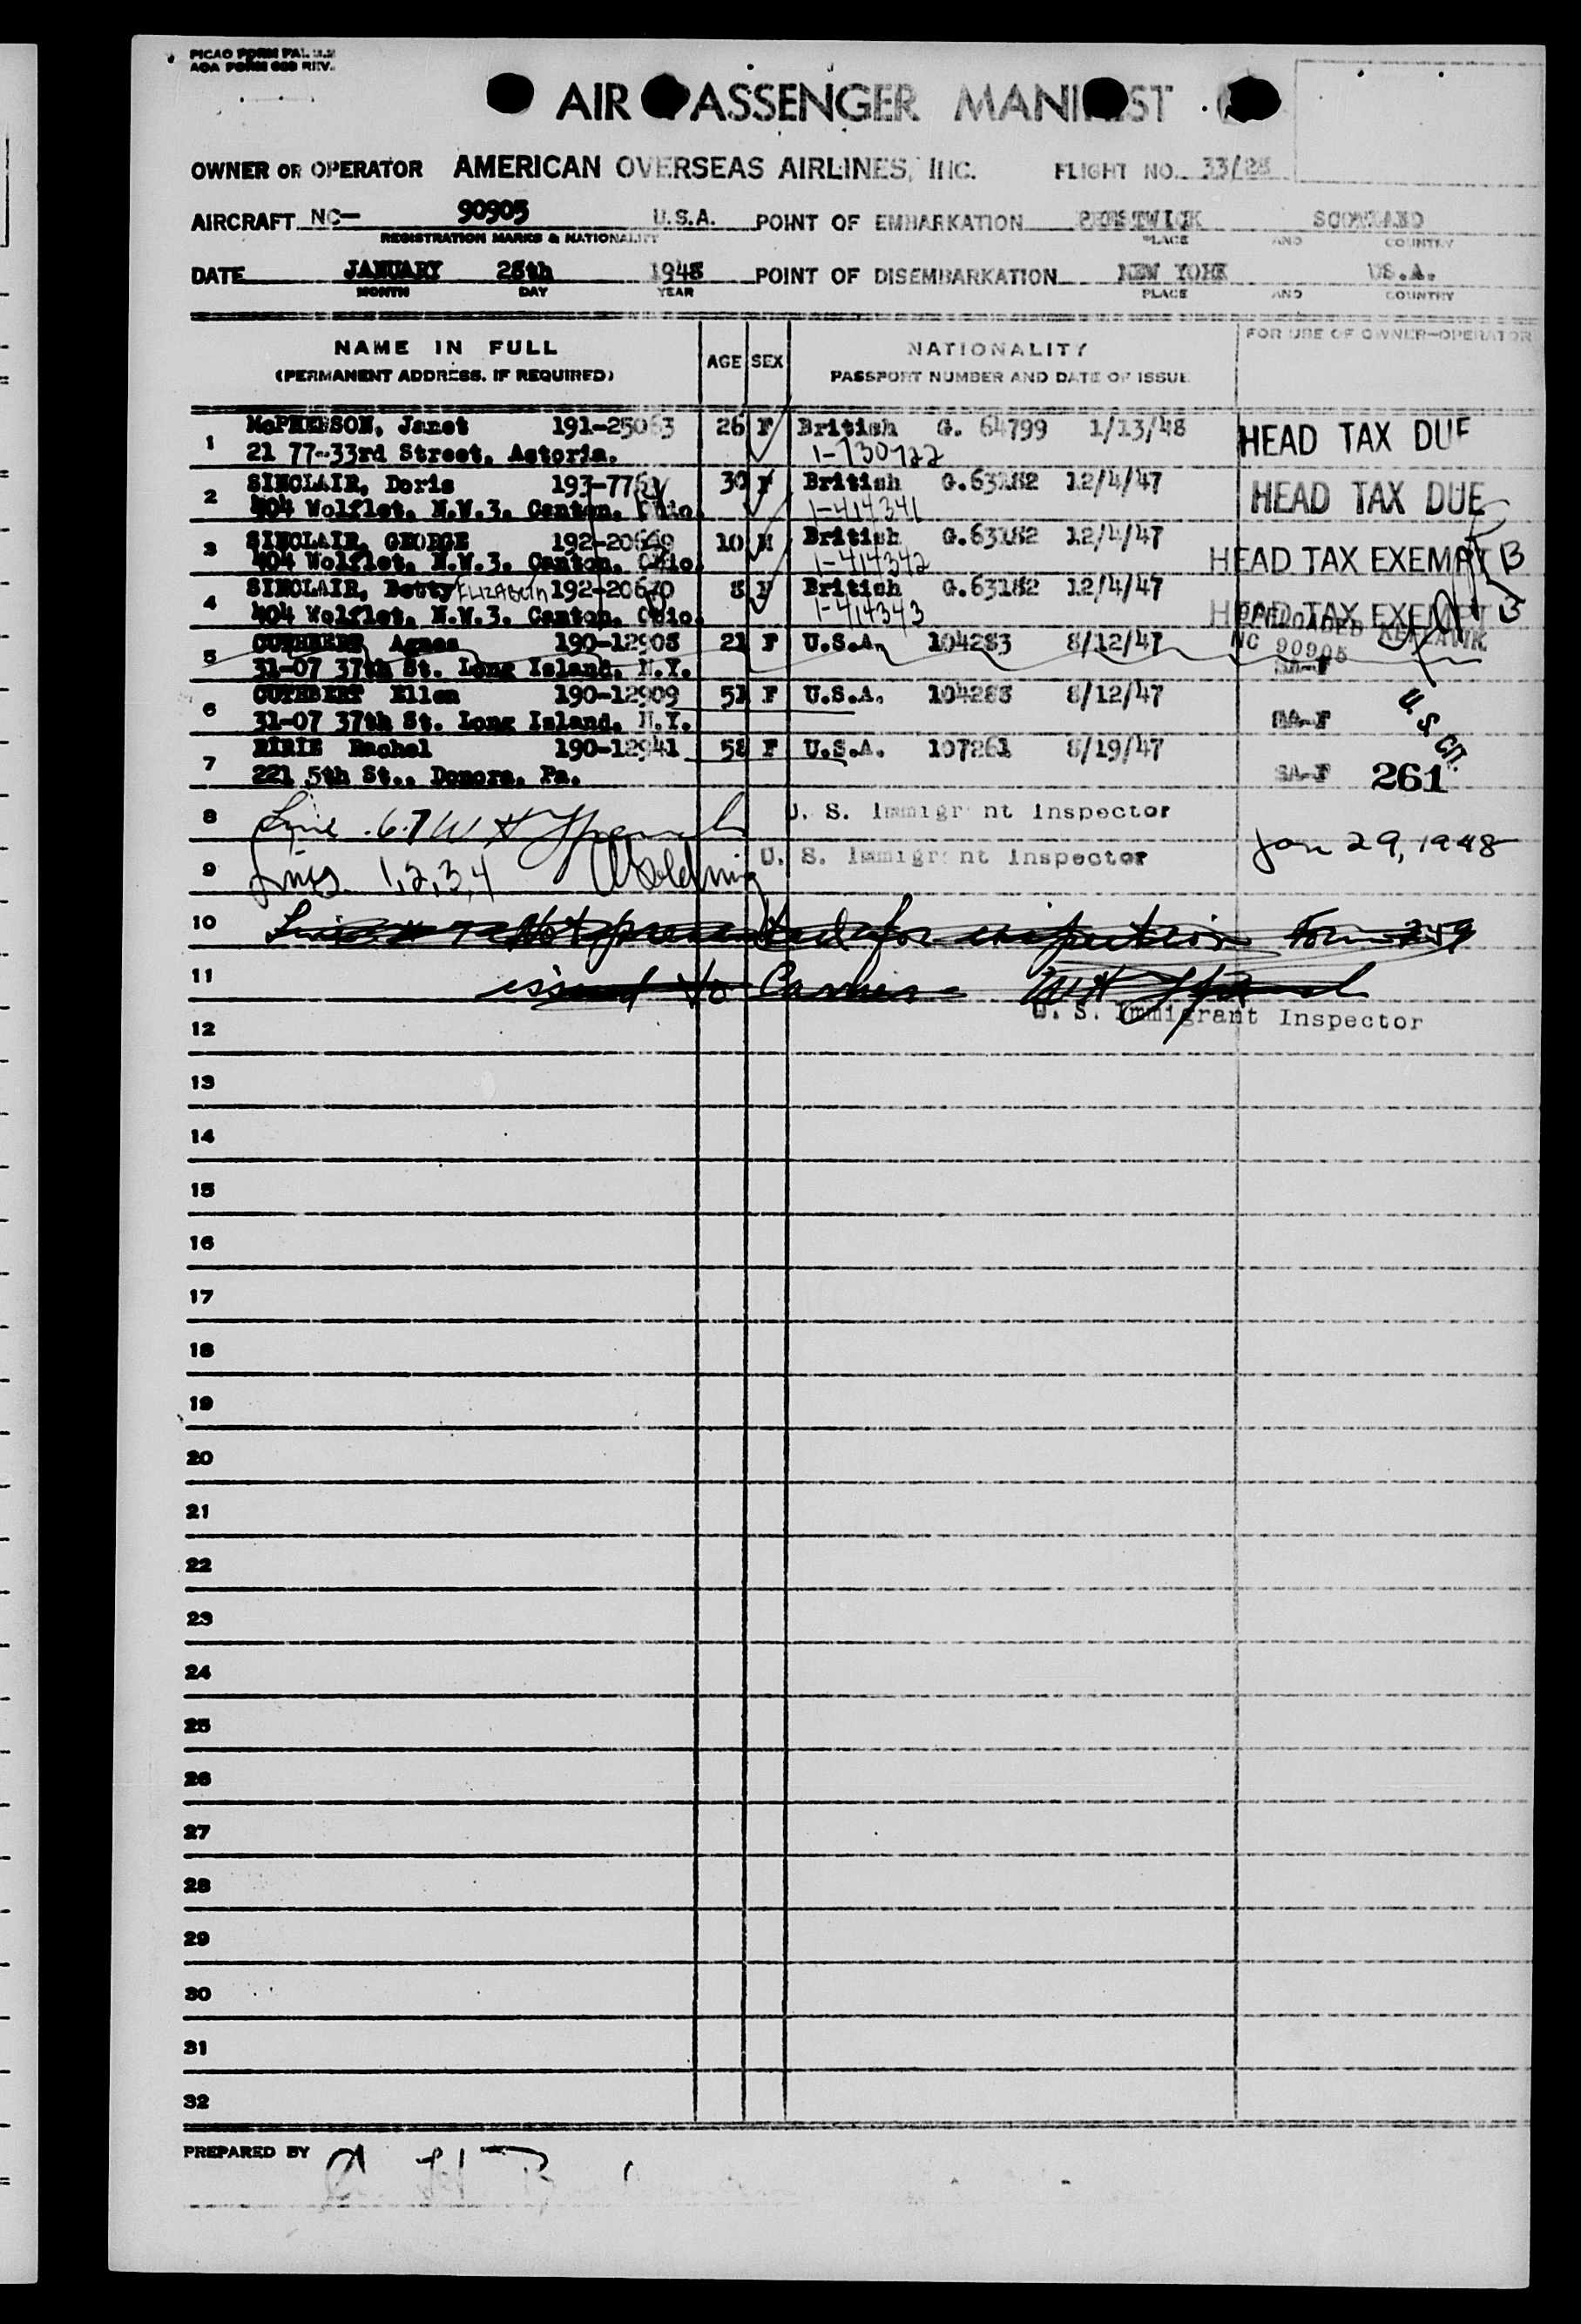 AOA FORM 688 REV.
AIR PASSENGER MANIFEST
OWNER OR OPERATOR AMERICAN OVERSEAS AIRLINES, INC. FLIGHT NO. 33/28
AIRCRAFT NC— 90905 U.S.A. POINT OF EMBARKATION PRESTWICK SCOTLAND
REGISTRATION MARKS & NATIONALITY PLACE AND COUNTRY
DATE JANUARY 28th 1948 POINT OF DISEMBARKATION NEW YORK US.A.
MONTH DAY YEAR PLACE AND COUNTRY
NAME IN FULL AGE SEX NATIONALITY FOR USE OF OWNER-OPERATOR
(PERMANENT ADDRESS, IF REQUIRED) PASSPORT NUMBER AND DATE OF ISSUE
1 McPHERSON, Janet 191-25063 26 F British G. 64799 1/13/48 HEAD TAX DUE
21 77-33rd Street, Astoria. 1-730722
2 SINCLAIR, Doris 193-776 30 F British G.63182 12/4/47 HEAD TAX DUE
404 Wolflet, N.W.3. Canton, Ohio. 1-414341
3 SINCLAIR, GEORGE 192-20669 10 M British G.63182 12/4/47 HEAD TAX EXEMPT B
404 Wolflet, N.W.3. Canton, Ohio. 1-414342
4 SINCLAIR, Betty ELIZABETH 192-20670 8 F British G.63182 12/4/47 HEAD TAX EXEMPT B
404 Wolflet, N.W.3. Canton, Ohio. 1-414343 OFFLOADED KEFLAVIK
5 CUTHBERT Agnes 190-12908 21 F U.S.A. 104283 8/12/47 NC 90905
31-07 37th St. Long Island, N.Y. SA-F
6 CUTHBERT Ellen 190-12909 51 F U.S.A. 104288 8/12/47 U.S. CIT.
31-07 37th St. Long Island, N.Y. SA-F
7 BIRIE Rachel 190-12941 58 F U.S.A. 107261 8/19/47
221 5th St., Donora, Pa. SA-F 261
8 Line 6.7 W H U. S. Immigrant Inspector
Jan 29, 1948
9 Lines 1,2,3,4 U. S. Immigrant Inspector
10 Not presented for inspection Form 259
11 issued to Carrier W H
U. S. Immigrant Inspector
12
13
14
15
16
17
18
19
20
21
22
23
24
25
26
27
28
29
30
31
32
PREPARED BY